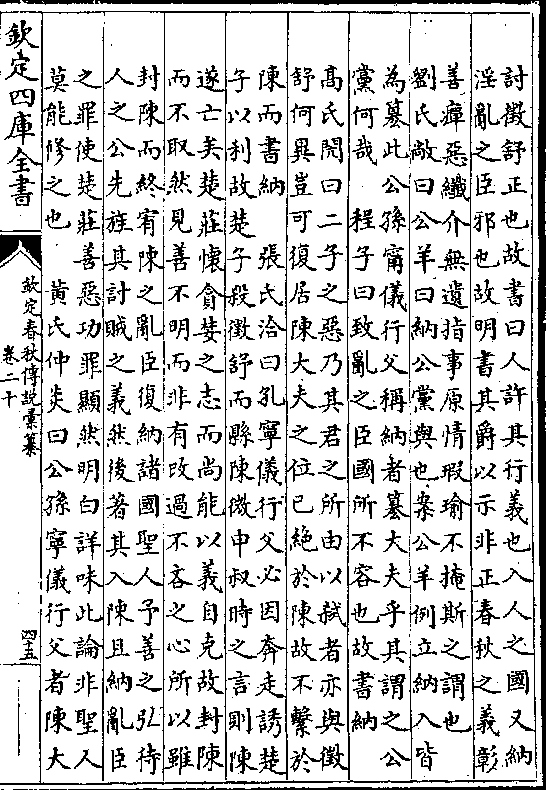 討徵舒正也故書曰人許其行義也入人之國又納
淫亂之臣邪也故明書其爵以示非正春秋之義彰
善癉惡纖介無遺指事原情瑕瑜不掩斯之謂也
劉氏敞曰公羊曰納公黨與也案公羊例立納入皆
為篡此公孫甯儀行父稱納者篡大夫乎其謂之公
黨何哉　程子曰致亂之臣國所不容也故書納
高氏閌曰二子之惡乃其君之所由以弑者亦與徵
舒何異豈可復居陳大夫之位已絶於陳故不繫於
陳而書納　張氏洽曰孔寧儀行父必因奔走誘楚
子以利故楚子殺徵舒而縣陳微申叔時之言則陳
遂亡矣楚莊懷貪婪之志而尚能以義自克故封陳
而不取然見善不明而非有改過不吝之心所以雖
封陳而終宥陳之亂臣復納諸國聖人予善之弘待
人之公先旌其討賊之義然後著其入陳且納亂臣
之罪使楚莊善惡功罪顯然明白詳味此論非聖人
莫能修之也　黄氏仲炎曰公孫寧儀行父者陳大
欽定四庫全書
欽定春秋傳說彙纂
卷二十
四五